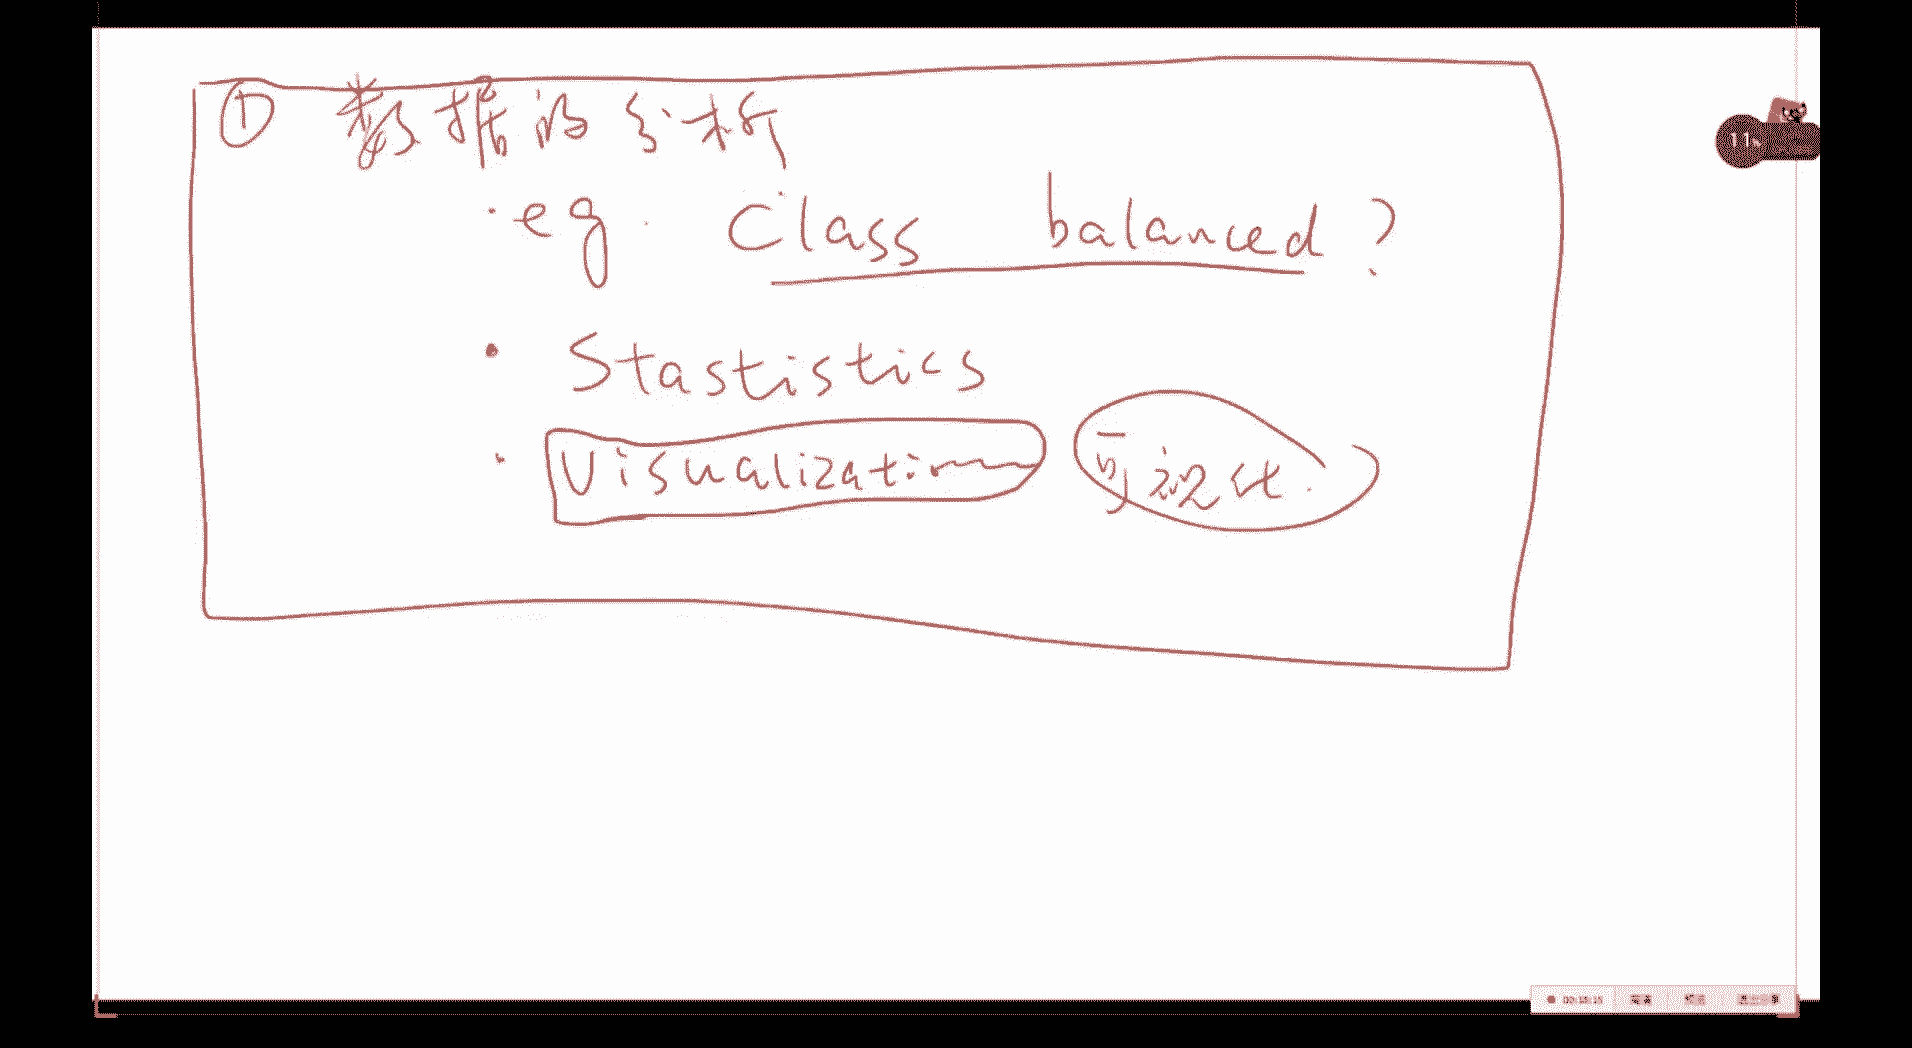 ① 数据的分析
· eg. Class balanced?
· Stastistics
· Visualization 可视化.